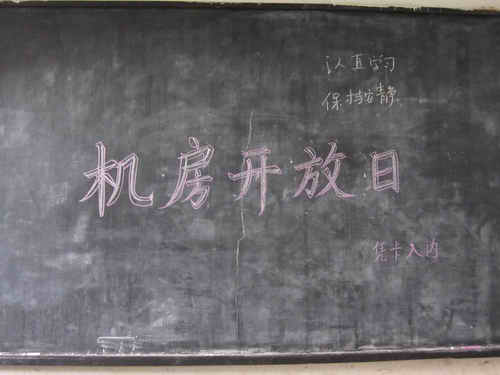 认真学习
保持安静
机房开放日
凭卡入内